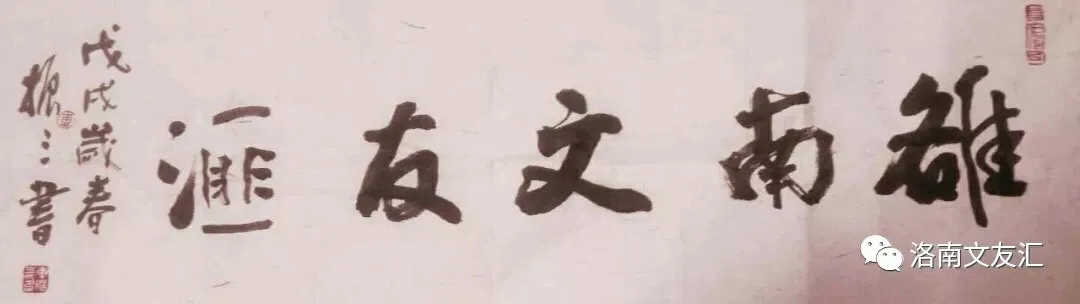 雒南文友滙
戊戌歲春
振三書
洛南文友汇